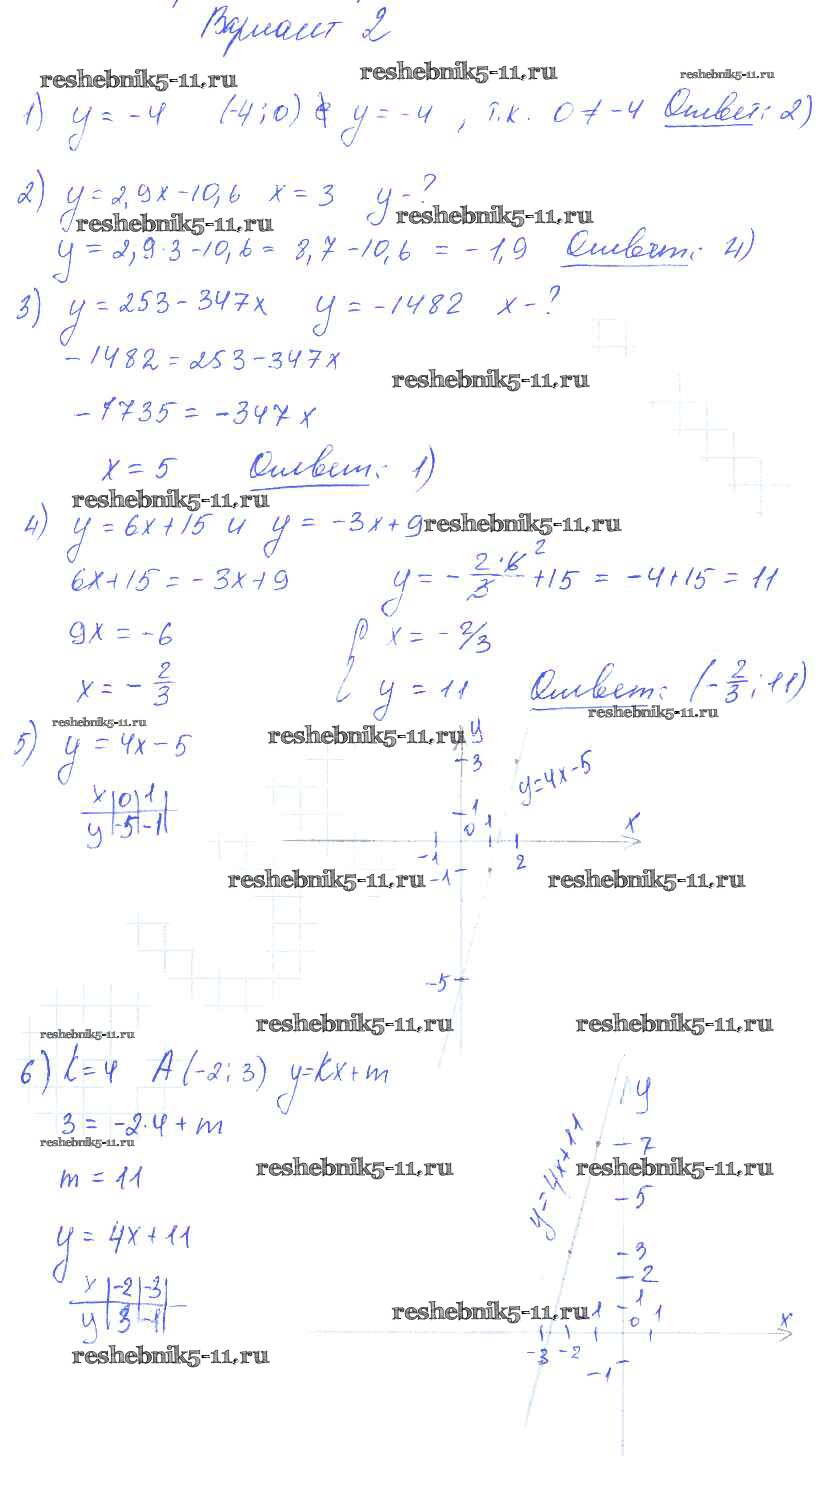 Вариант 2
reshebnik5-11.ru reshebnik5-11.ru reshebnik5-11.ru
1) y = -4 (-4; 0) ∉ y = -4, т.к. 0 ≠ -4 Ответ: 2)
2) y = 2,9x - 10,6 x = 3 y - ?
reshebnik5-11.ru reshebnik5-11.ru
y = 2,9·3 - 10,6 = 8,7 - 10,6 = -1,9 Ответ: 4)
3) y = 253 - 347x y = -1482 x - ?
-1482 = 253 - 347x
reshebnik5-11.ru
-1735 = -347x
x = 5 Ответ: 1)
reshebnik5-11.ru
4) y = 6x + 15 и y = -3x + 9 reshebnik5-11.ru
6x + 15 = -3x + 9 y = - 2·6/3 2 + 15 = -4 + 15 = 11
9x = -6 { x = -2/3
x = - 2/3 y = 11 Ответ: (- 2/3; 11)
reshebnik5-11.ru reshebnik5-11.ru
5) y = 4x - 5 reshebnik5-11.ru y
3 y=4x-5
x | 0 | 1
y | -5 | -1
1 0 1 x
-1 2
reshebnik5-11.ru -1 reshebnik5-11.ru
-5
reshebnik5-11.ru reshebnik5-11.ru
reshebnik5-11.ru
6) k = 4 A (-2; 3) y = kx + m
y
3 = -2·4 + m
reshebnik5-11.ru y=4x+11 7
m = 11 reshebnik5-11.ru reshebnik5-11.ru
5
y = 4x + 11
3
2
x | -2 | -3
y | 3 | -1
reshebnik5-11.ru 1 1 0 1 x
reshebnik5-11.ru -3 -2
-1